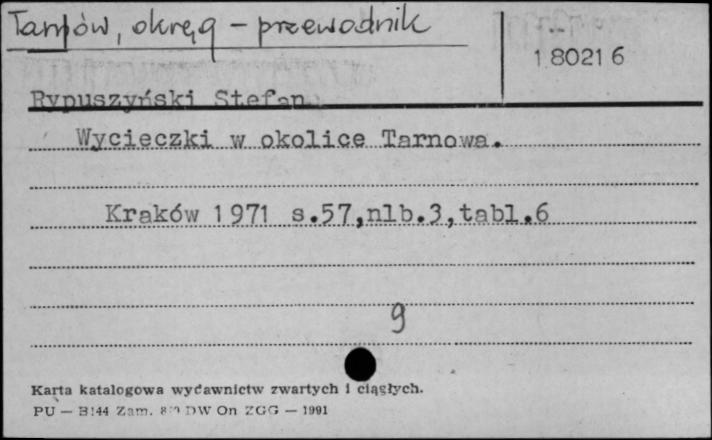 Tarnów, okręg - przewodnik
180216
Rypuszyński Stefan
Wycieczki w okolice Tarnowa.
Kraków 1971 s.57,nlb.3,tabl.6
9
Karta katalogowa wydawnictw zwartych i ciągłych.
PU — B144 Zam. DW On ZGG — 1991